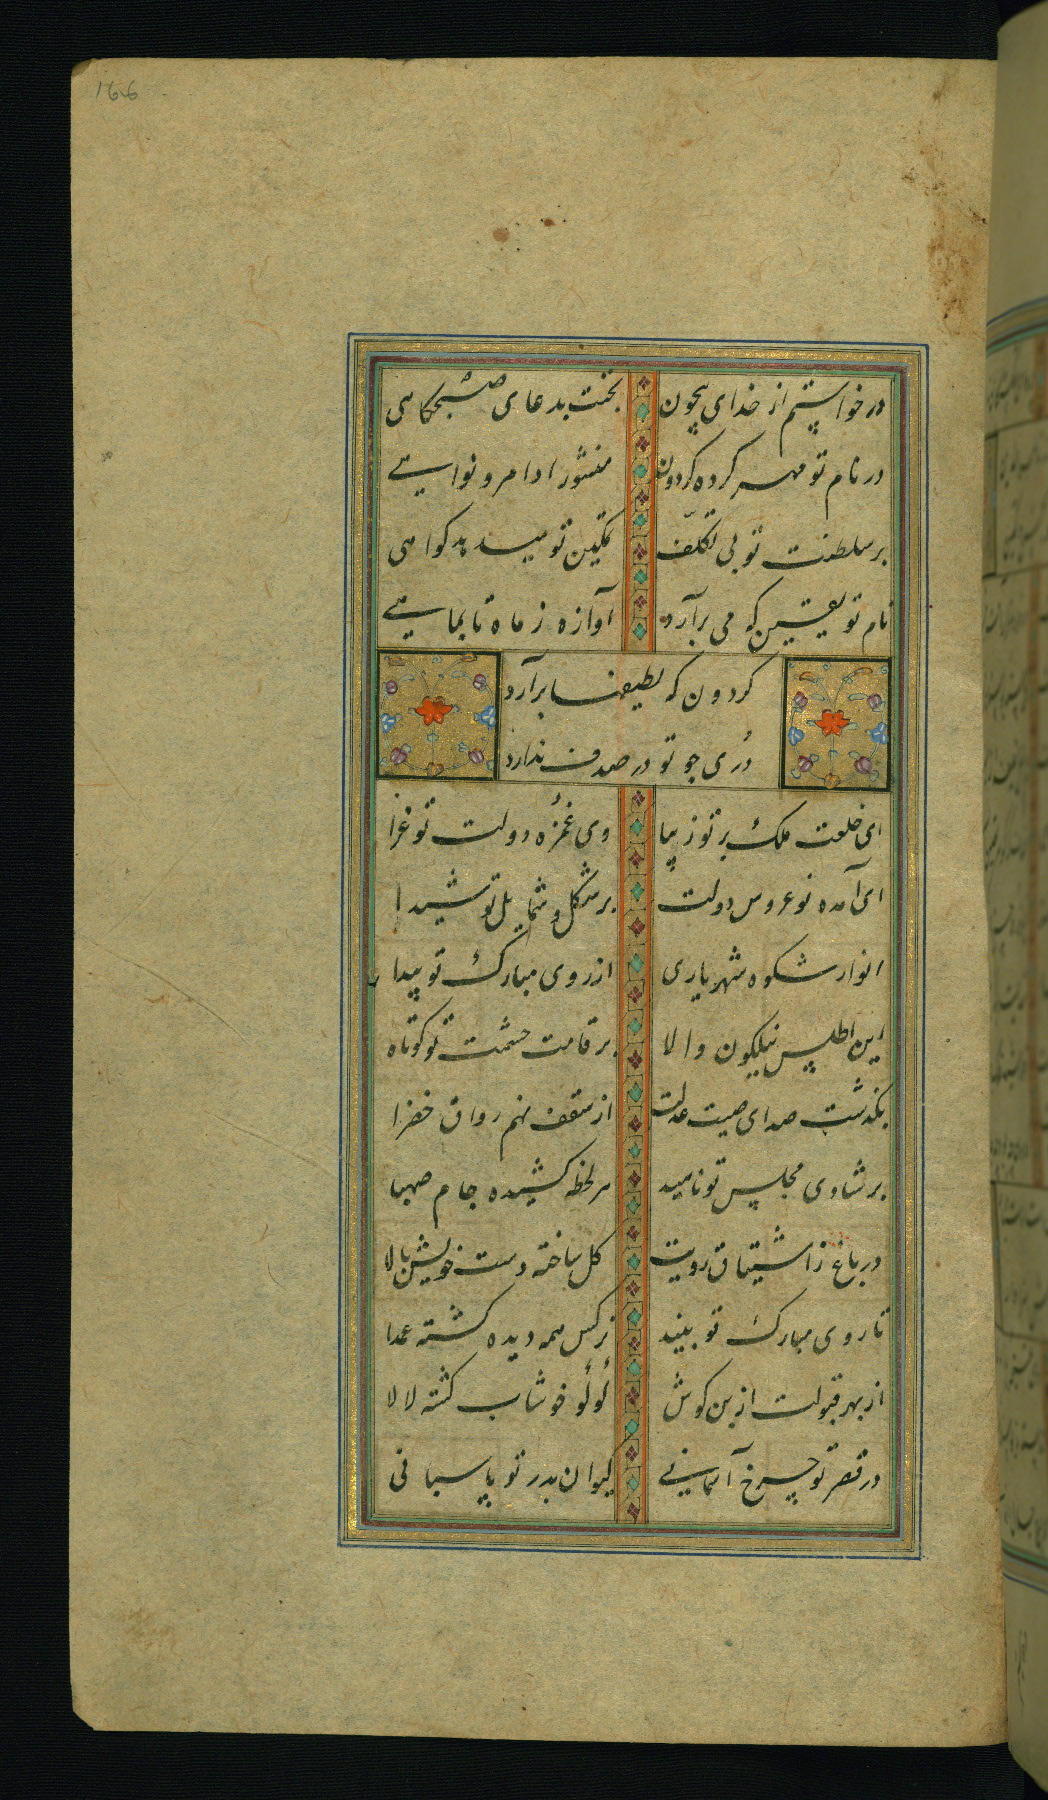 166
درخواستم از خدای بیچون بختت بدعای صبحگاهی
در نام تو مهر کرده گردون منشور اوامر و نواهی
بر سلطنت تو بی تکلّف تمکین تو میدهد گواهی
نام تو یقین که می برآرد آوازه ز ماه تا بماهی
گردون که لطیفها برآرد
دُری چو تو در صدف ندارد
ای خلعت ملک بر تو زیبا وی غُرّه دولت تو غرا
ای آمده نوعروس دولت بر شکل و شمایل تو شیدا
انوار شکوه شهریاری از روی مبارک تو پیدا
این اطلس نیلگون والا بر قامت حشمت تو کوتاه
بگذشت صدای صیت عدلت از سقف نهم رواق خضرا
بر شادی مجلس تو ناهید هر لحظه کشیده جام صهبا
در باغ ز اشتیاق رویت گل ساخته دست خویش بالا
تا روی مبارک تو بیند نرگس همه دیده گشته عمدا
از بهر قبولت از بن گوش لُولُو خوشاب گشته لالا
در قصر تو چرخ آسمانی کیوان بدر تو پاسبانی